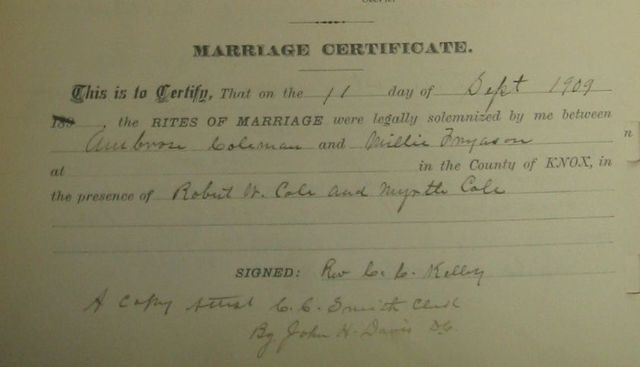 MARRIAGE CERTIFICATE.
This is to Certify, That on the 11 day of Sept 1909
189 , the RITES OF MARRIAGE were legally solemnized by me between
Ambrose Coleman and Millie
at in the County of KNOX, in
the presence of Robert W. Cole and Myrtle Cole
SIGNED: Rev C. C. Kelley
A Copy Attest C. C. Smith Clerk
By John H. Davis D.C.